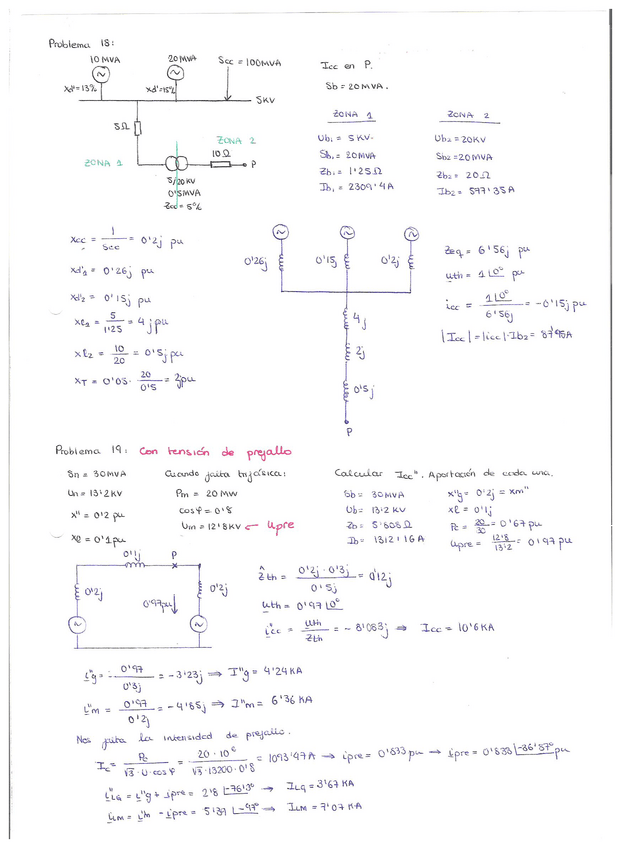 Problema 18:
10 MVA
20 MVA
Scc = 100MVA
Xd''= 13%
Xd'=15%
5KV
5Ω
ZONA 1
ZONA 2
10 Ω
P
5/20 KV
0'5MVA
Zcc = 5%
Icc en P.
Sb = 20 MVA.
ZONA 1
Ub1 = 5 KV.
Sb1 = 20MVA
Zb1 = 1'25Ω
Ib1 = 2309'4A
ZONA 2
Ub2 = 20KV
Sb2 = 20MVA
Zb2 = 20Ω
Ib2 = 577'35A
Xcc = 1/Scc = 0'2j pu
Xd'1 = 0'26j pu
Xd'2 = 0'15j pu
Xl1 = 5/1'25 = 4j pu
Xl2 = 10/20 = 0'5j pu
XT = 0'05· 20/0'5 = 2j pu
0'26j
0'15j
0'2j
4j
2j
0'5j
P
Zeq = 6'56j pu
uth = 1|0° pu
icc = 1|0°/6'56j = -0'15j pu
|Icc| = |icc|·Ib2 =
Problema 19: Con tensión de prefallo
Sn = 30MVA
Un = 13'2 KV
X'' = 0'2 pu
Xl = 0'1 pu
Cuando falta trifásica:
Pm = 20 MW
cosφ = 0'8
Um = 12'8KV ← Upre
Calcular Icc''. Aportación de cada una.
Sb = 30MVA
Ub = 13'2 KV
Zb = 5'808 Ω
Ib = 1312'16A
X''g = 0'2j = Xm''
Xl = 0'1j
Pc = 20/30 = 0'67 pu
Upre = 12'8/13'2 = 0'97 pu
0'1j
P
0'2j
0'97pu
0'2j
Zth = 0'2j · 0'3j/0'5j = 0'12j
uth = 0'97|0°
i''cc = uth/Zth = - 8'083j ⇒ Icc = 10'6KA
i''g = 0'97/0'3j = -3'23j ⇒ I''g = 4'24KA
i''m = 0'97/0'2j = -4'85j ⇒ I''m = 6'36 KA
Nos falta la intensidad de prefallo.
Ic = Pc/√3·U·cosφ = 20·10⁶/√3·13200·0'8 = 1093'47A → ipre = 0'833 pu → ipre = 0'833|-36'87° pu
i''LG = i''g + ipre = 2'8|-76'3° → ILG = 3'67 KA
iLM = i''m - ipre = 5'39|-97° → ILM = 7'07 KA